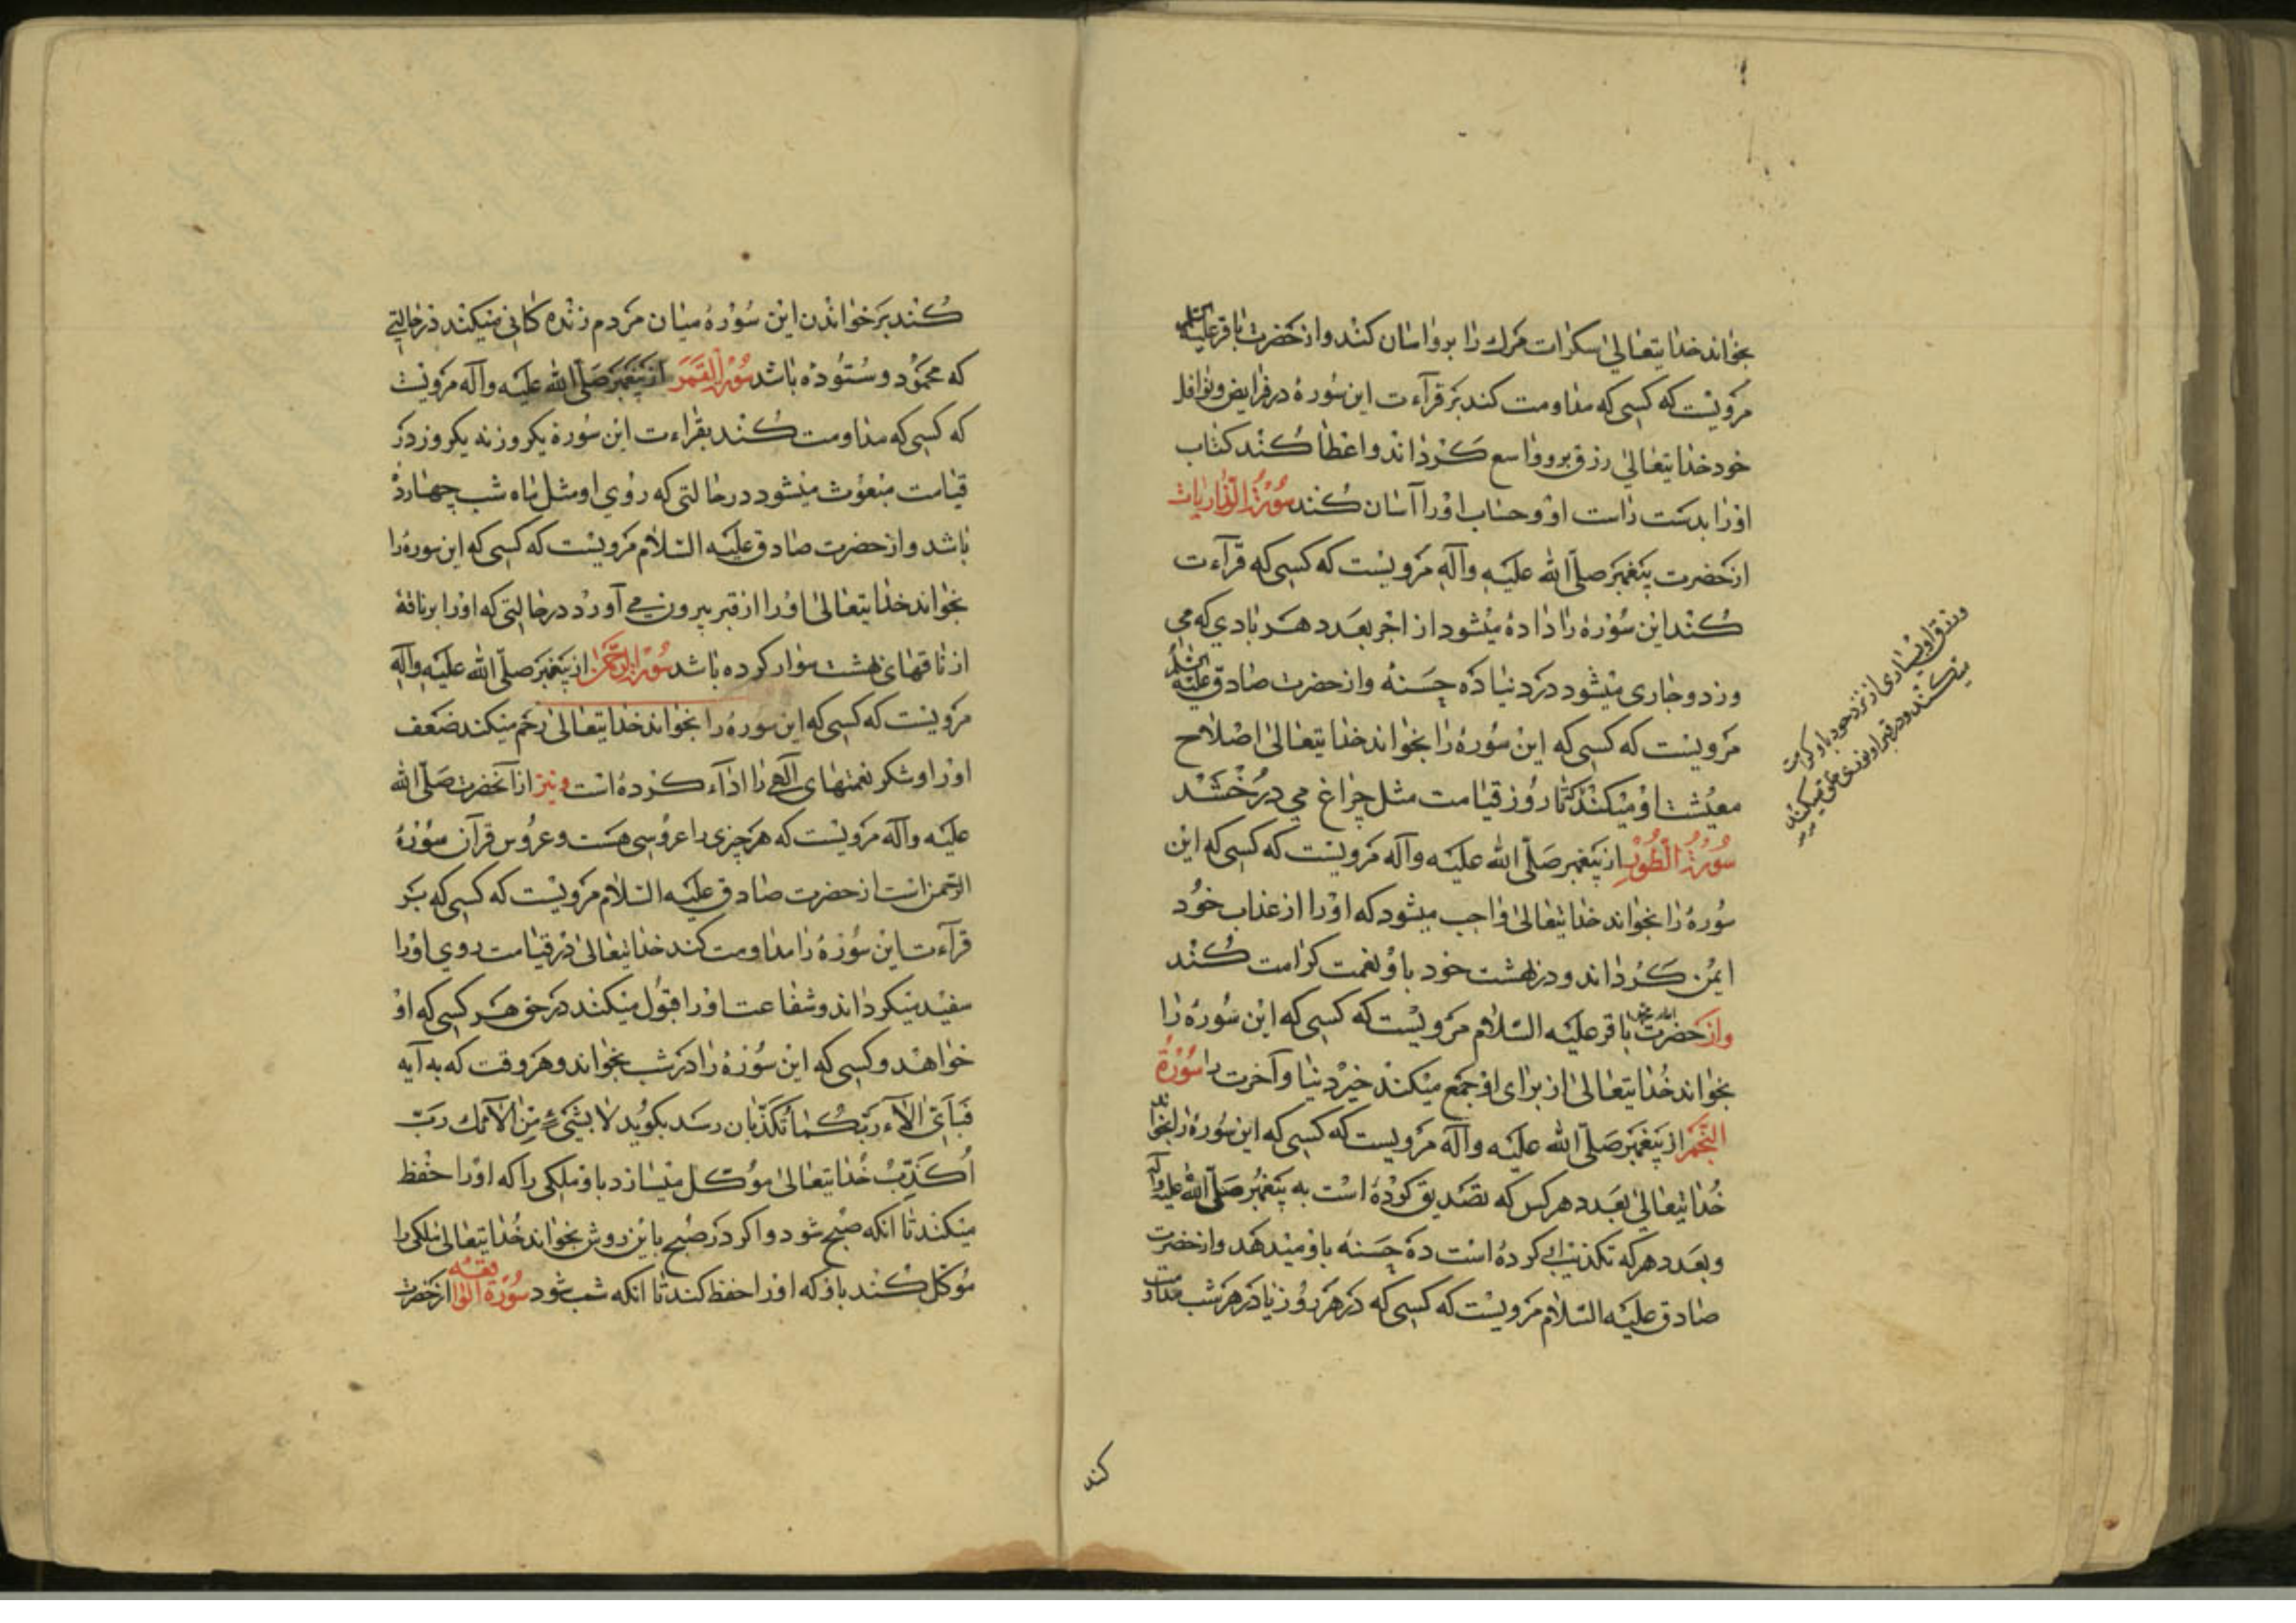 بخواند خدایتعالی سکرات مرك را برو اسان کند و از حضرت باقر علیه السلم
مرویست که کسی که مداومت کند بر قرآءت این سوره در فرایض و نوافل
خود خدایتعالی رزق برو واسع کرداند و اعطا کند کتاب
اورا بدست راست او و حساب اورا آسان کند سورة الذاریات
از حضرت پیغمبر صلّی الله علیه وآله مرویست که کسی که قرآءت
کند این سوره را داده میشود از اجر بعدد هر بادی که می
وزد و جاری میشود در دنیا ده حسنه و از حضرت صادق علیه السلم
مرویست که کسی که این سوره را بخواند خدایتعالی اصلاح
معیشت او میکند تا روز قیامت مثل چراغ می درخشد
سورة الطور از پیغمبر صلّی الله علیه وآله مرویست که کسی که این
سوره را بخواند خدایتعالی واجب میشود که اورا از عذاب خود
ایمن کرداند و در بهشت خود باو نعمت کرامت کند
واز حضرت امام محمد باقر علیه السّلام مرویست که کسی که این سوره را
بخواند خدایتعالی از برای او جمع میکند خیر دنیا و آخرت را سورة
النجم از پیغمبر صلّی الله علیه وآله مرویست که کسی که این سوره را بخواند
خدایتعالی بعدد هر کس که تصدیق کرده است به پیغمبر صلّی الله علیه وآله
و بعدد هر که تکذیب کرده است ده حسنه باو میدهد و از حضرت
صادق علیه السّلام مرویست که کسی که در هر روز یا در هر شب مداومت
و رزق او بسیاری از نزد خود باو کرامت
میکند و در قبر او قندیلی خلق میکند
کند
کند بر خواندن این سوره میان مردم زنده کانی میکند در حالتی
که محمود و ستوده باشد سورة القمر از پیغمبر صلّی الله علیه وآله مرویست
که کسی که مداومت کند بقراءت این سوره یکروز نه یکروز در
قیامت مبعوث میشود در حالتی که روی او مثل ماه شب چهارده
باشد و از حضرت صادق علیه السّلام مرویست که کسی که این سوره را
بخواند خدایتعالی اورا از قبر بیرون می آورد در حالتی که اورا بر ناقۀ
از ناقهای بهشت سوار کرده باشد سورة الرحمن از پیغمبر صلّی الله علیه وآله
مرویست که کسی که این سوره را بخواند خدایتعالی رحم میکند ضعف
اورا و شکر نعمتهای آلهی را ادآء کرده است و نیز از آنحضرت صلّی الله
علیه وآله مرویست که هر چیزی را عروسی هست و عروس قرآن سورۀ
الرّحمن است از حضرت صادق علیه السّلام مرویست که کسی که بر
قرآءت این سوره را مداومت کند خدایتعالی در قیامت روی اورا
سفید میکرداند و شفاعت اورا قبول میکند در حق هر کسی که او
خواهد و کسی که این سوره را در شب بخواند و هر وقت که به آیه
فبأیّ الآء ربّکما تکذّبان رسد بکوید لا بشیء من الآئک ربّ
اُکذّب خدایتعالی موکل میسازد باو ملکی را که اورا حفظ
میکند تا انکه صبح شود و اکر در صبح باین روش بخواند خدایتعالی ملکی را
موکل کند باو که اورا حفظ کند تا انکه شب شود سورة الواقعه از حضرت